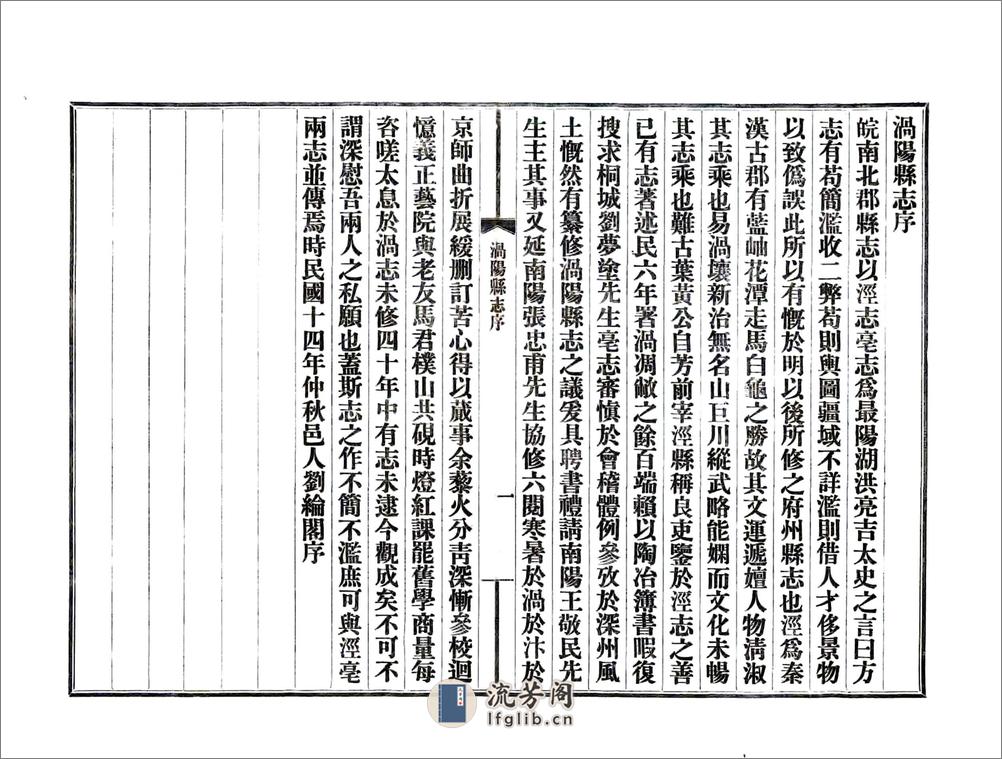 渦陽縣志序
皖南北郡縣志以涇志亳志爲最陽湖洪亮吉太史之言曰方
志有苟簡濫收二弊苟則輿圖疆域不詳濫則借人才侈景物
以致僞誤此所以有慨於明以後所修之府州縣志也涇爲秦
漢古郡有藍岫花潭走馬白龜之勝故其文運遞嬗人物淸淑
其志乘也易渦壤新治無名山巨川縱武略能嫻而文化未暢
其志乘也難古葉黃公自芳前宰涇縣稱良吏鑒於涇志之善
已有志著述民六年署渦凋敝之餘百端賴以陶冶簿書暇復
搜求桐城劉夢塗先生亳志審愼於會稽體例參攷於深州風
土慨然有纂修渦陽縣志之議爰具聘書禮請南陽王敬民先
生主其事又延南陽張忠甫先生協修六閱寒暑於渦於汴於
渦陽縣志序
一
京師曲折展緩删訂苦心得以蕆事余藜火分靑深慚參校迴
憶義正藝院與老友馬君樸山共硯時燈紅課罷舊學商量每
咨嗟太息於渦志未修四十年中有志未逮今觀成矣不可不
謂深慰吾兩人之私願也蓋斯志之作不簡不濫庶可與涇亳
兩志並傳焉時民國十四年仲秋邑人劉綸閣序
流芳阁
lfglib.cn